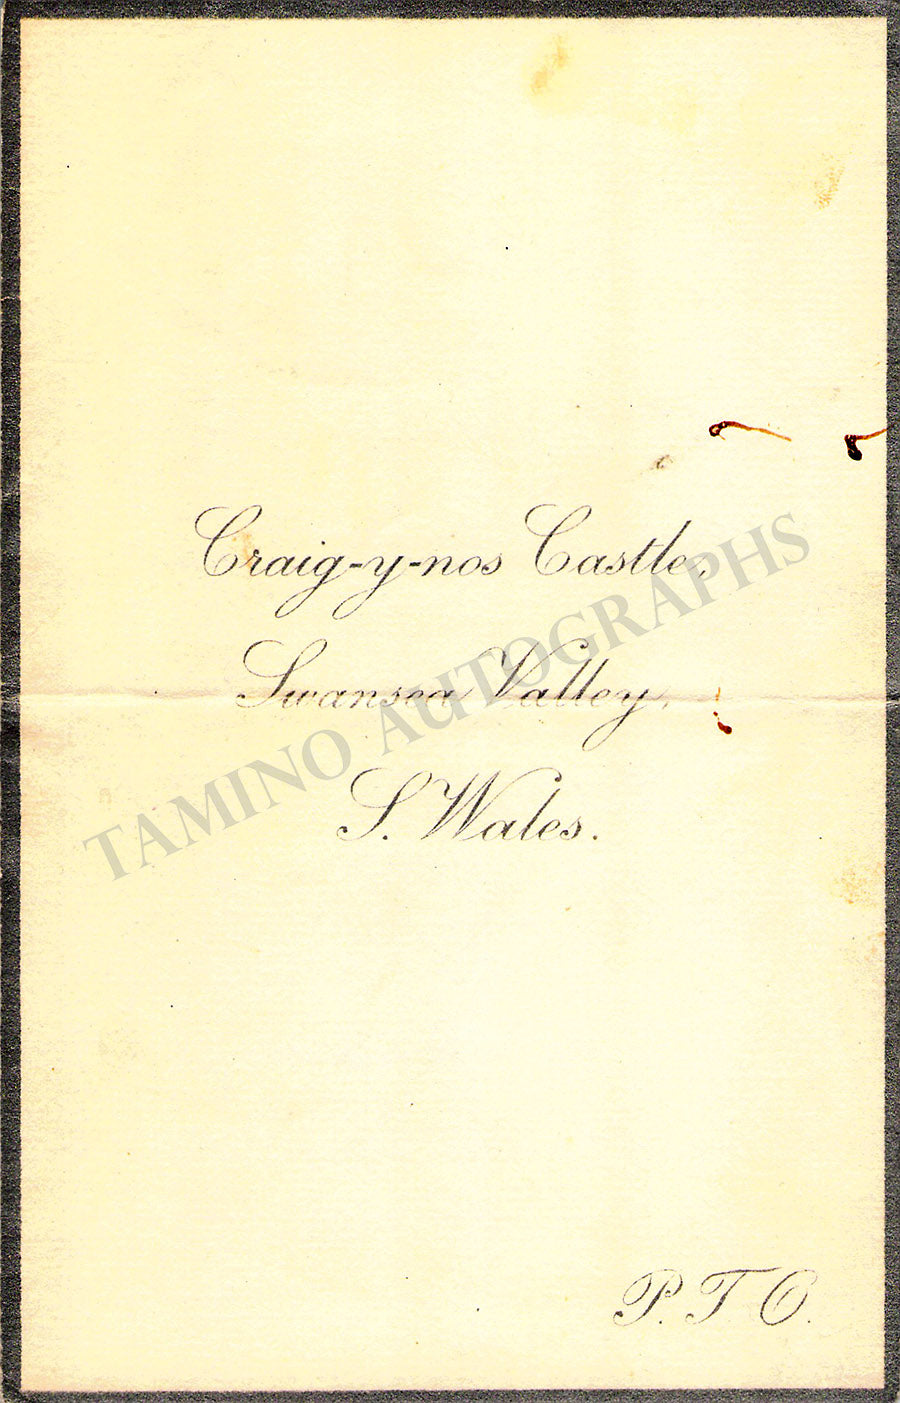 Craig-y-nos Castle,
Swansea Valley,
S. Wales.
P. T. O.
TAMINO AUTOGRAPHS